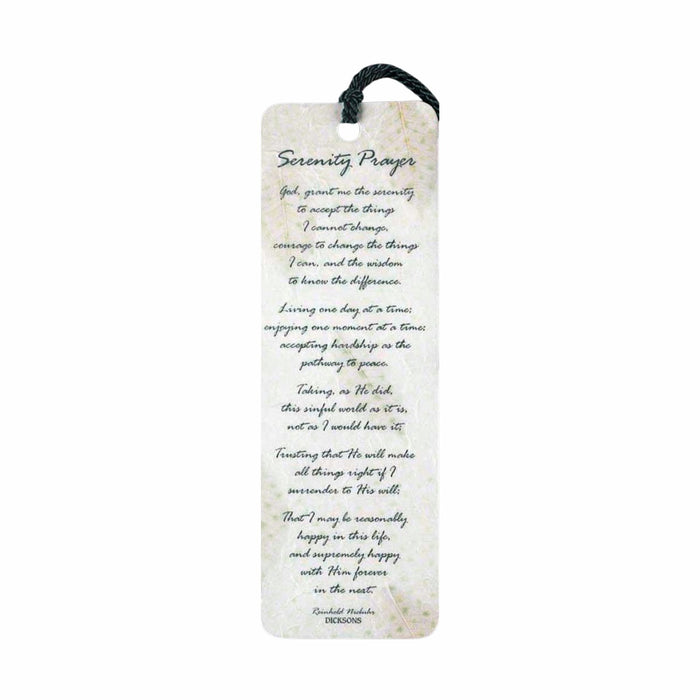 Serenity Prayer
God, grant me the serenity
to accept the things
I cannot change,
courage to change the things
I can, and the wisdom
to know the difference.
Living one day at a time;
enjoying one moment at a time;
accepting hardship as the
pathway to peace.
Taking, as He did,
this sinful world as it is,
not as I would have it;
Trusting that He will make
all things right if I
surrender to His will;
That I may be reasonably
happy in this life,
and supremely happy
with Him forever
in the next.
Reinhold Niebuhr
DICKSONS